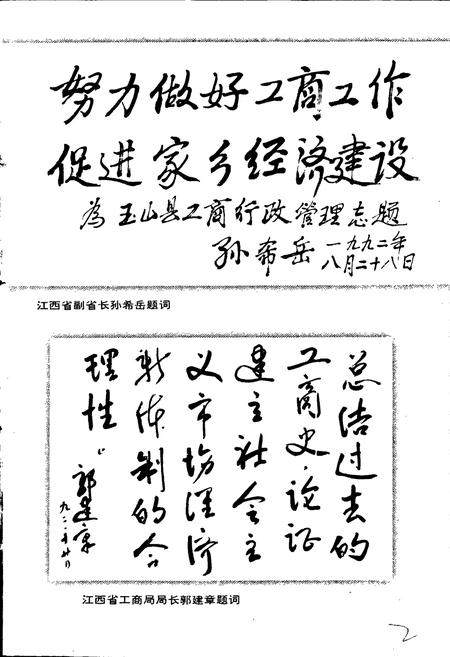 努力做好工商工作
促进家乡经济建设
為玉山县工商行政管理志题
孙希岳 一九九二年
八月二十八日
江西省副省长孙希岳题词
总结过去的
工商史,论证
建立社会主
义市场经济
新体制的合
理性。
郭建章
江西省工商局局长郭建章题词
2